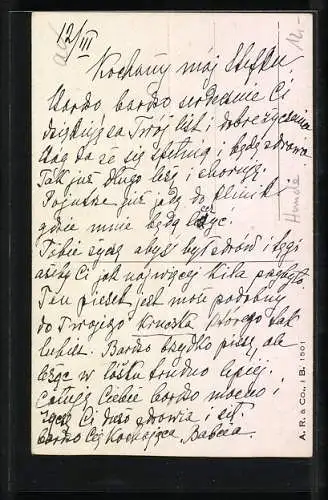 12/III
12.-
Kochany mój Stefku
Bardzo bardzo serdecznie Ci
dziękuję za Twój list i dobre życzenia
Daj Boże się spełnią i będę zdrowa
Tak już długo leżę i choruję.
Pojutrze już jadę do kliniki
gdzie mnie będą leczyć.
Tobie życzę abyś był zdrów i tęgi
ażeby Ci jak najwięcej kila przybyło.
Ten piesek jest może podobny
do Twojego Kruczka którego tak
lubisz. Bardzo brzydko piszę, ale
leżąc w łóżku trudno lepiej.
Całuję Ciebie bardzo mocno i
życzę Ci dużo zdrowia i sił.
bardzo Cię Kochająca Babcia
Hunde
A. R. & CO., i B. 1501